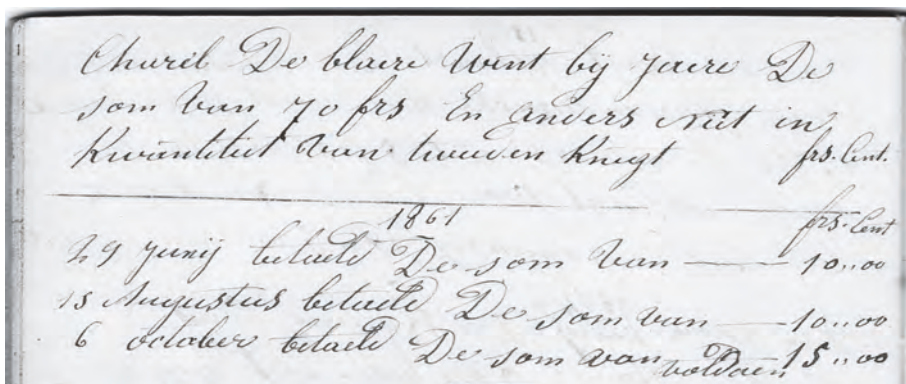 Charil De blaere Wint bij Jaere De
som van 70 frs En anders niet in
Kwantitut van tweeden Knegt frs. Cent.
1861 frs. Cent
29 Junij betaeld De som van — 10,,00
15 Augustus betaeld De som van — 10,,00
6 october betaeld De som van 15,,00
voldaen